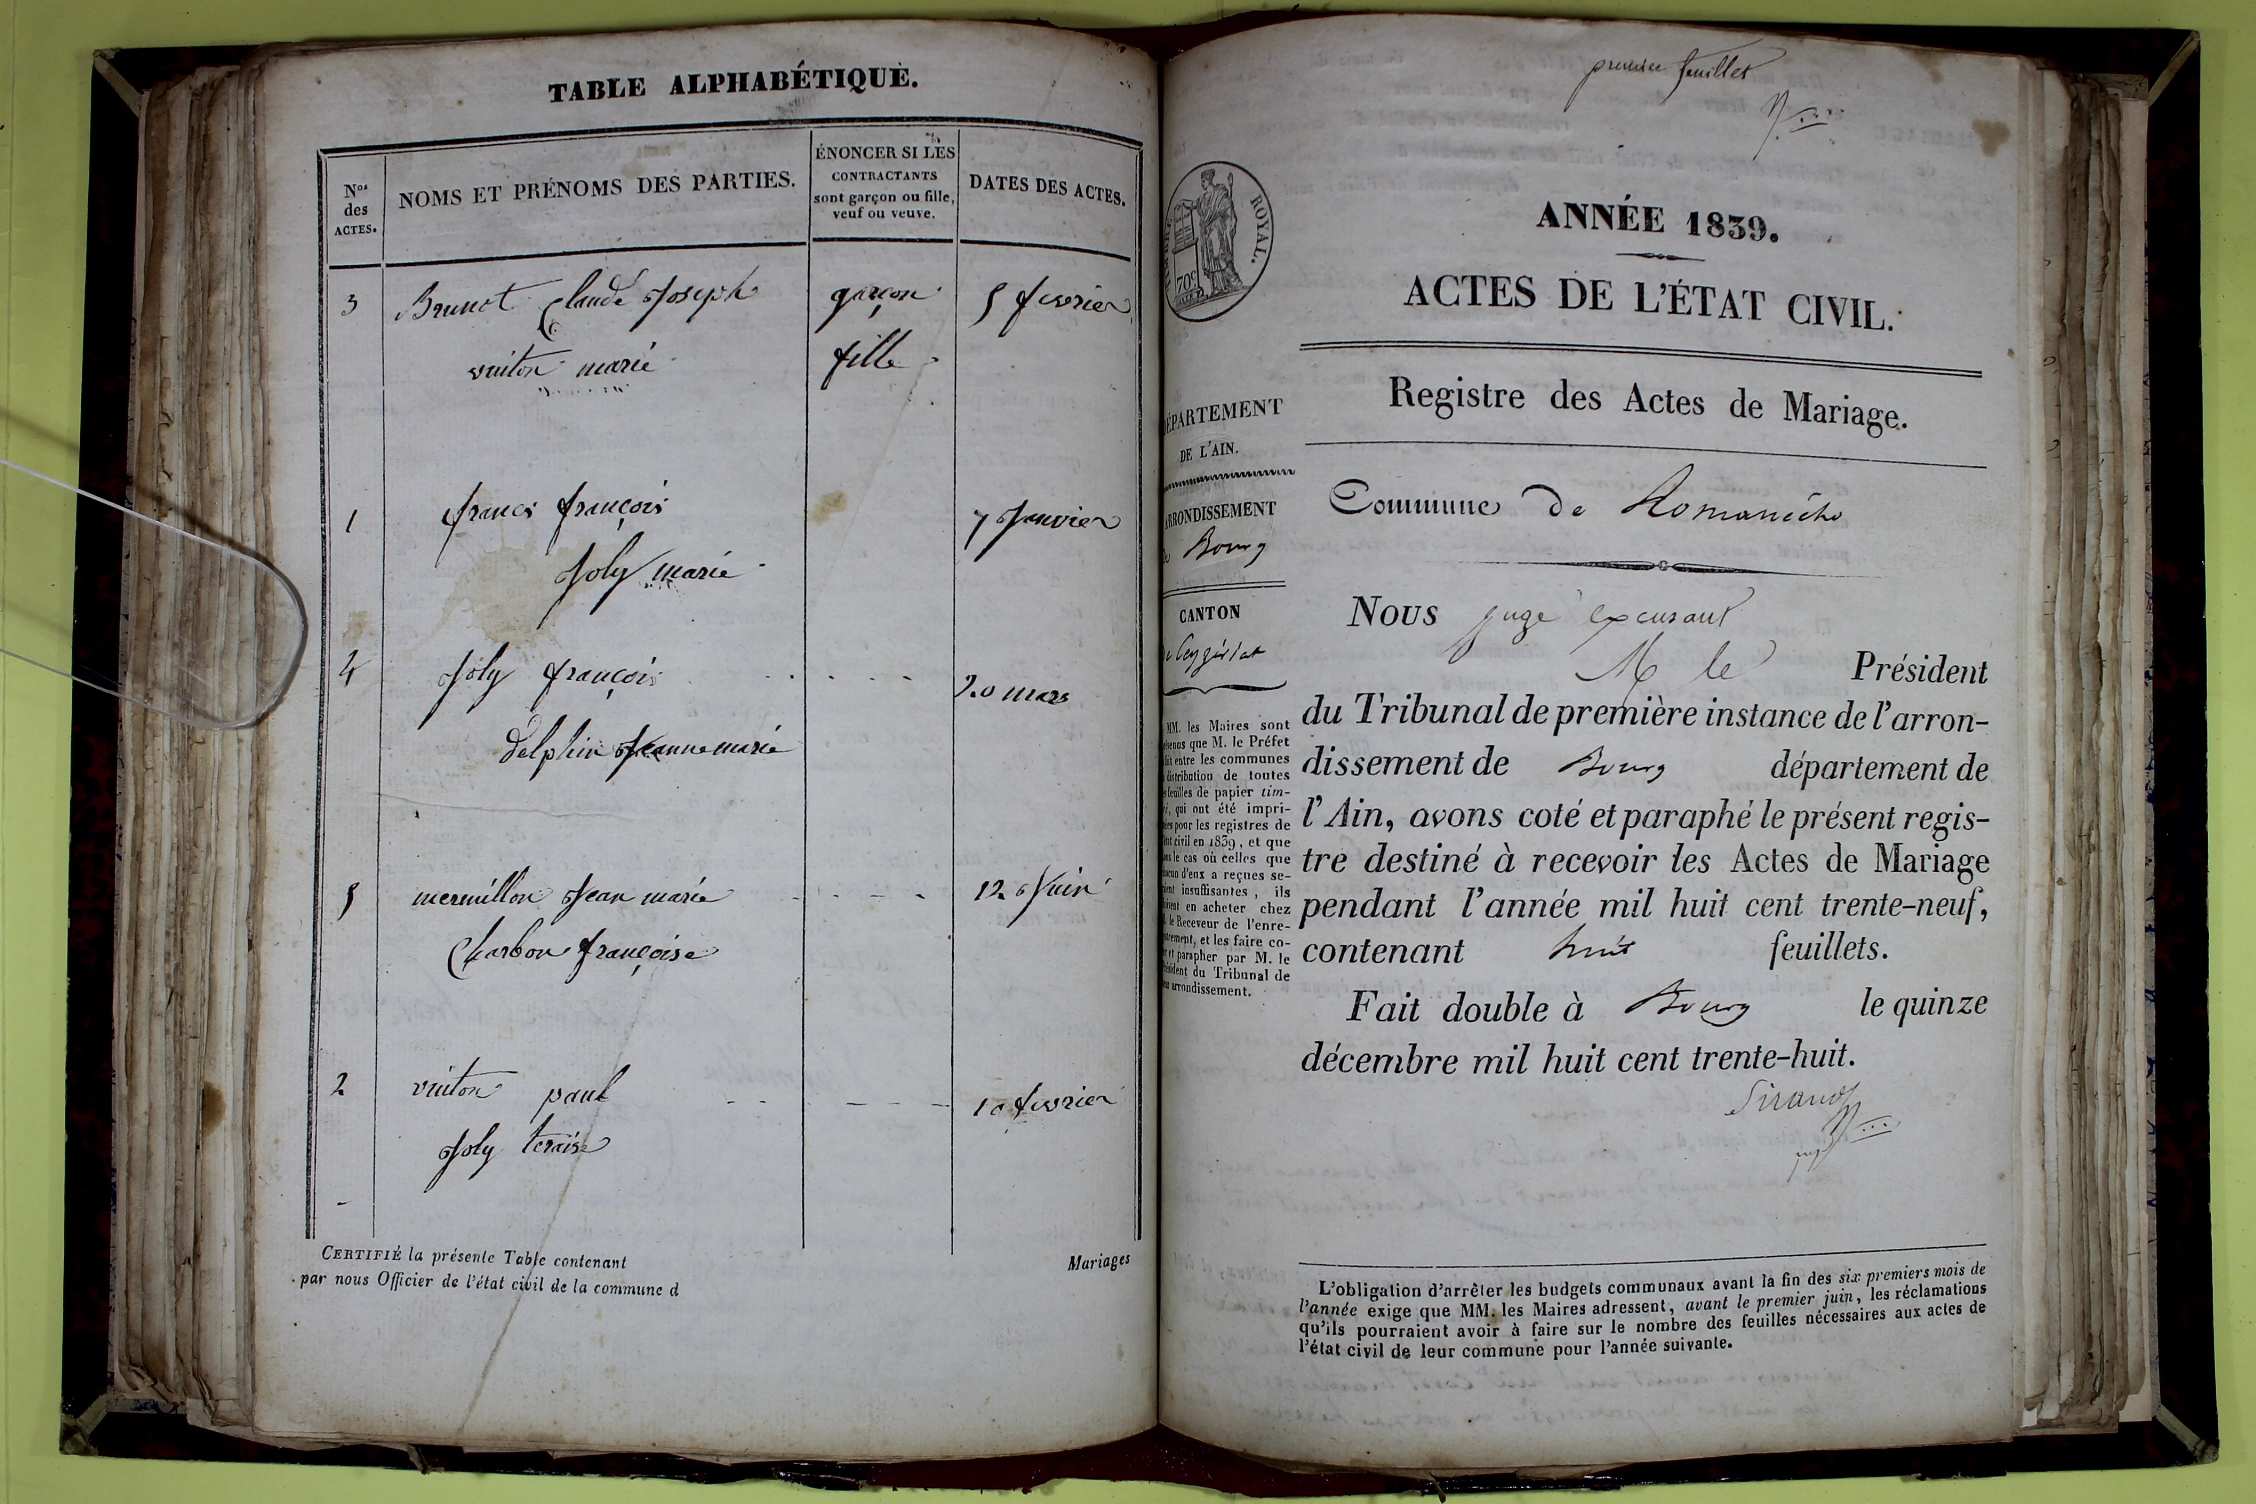 TABLE ALPHABÉTIQUE.
Nos des ACTES.
NOMS ET PRÉNOMS DES PARTIES.
ÉNONCER SI LES
CONTRACTANTS
sont garçon ou fille,
veuf ou veuve.
DATES DES ACTES.
3 Brunet Claude Joseph garçon 5 fevrier
vuiton marie fille
1 francs françois 7 Janvier
Joly marie
4 Joly françois 20 mars
delphin Jeanne marie
5 mermillon Jean marie 12 Juin
Charbon françoise
2 vuiton paul 10 fevrier
Joly teraise
CERTIFIÉ la présente Table contenant Mariages
par nous Officier de l'état civil de la commune d
premier feuillet
ROYAL.
70c
ANNÉE 1839.
ACTES DE L'ÉTAT CIVIL.
Registre des Actes de Mariage.
DÉPARTEMENT
DE L'AIN.
ARRONDISSEMENT
de Bourg
CANTON
de Ceyzériat
MM. les Maires sont
que M. le Préfet
fait entre les communes
distribution de toutes
feuilles de papier tim-
qui ont été impri-
pour les registres de
civil en 1839, et que
le cas où celles que
d'eux a reçues se-
insuffisantes, ils
en acheter chez
le Receveur de l'enre-
et les faire co-
et parapher par M. le
Président du Tribunal de
arrondissement.
Commune de Romanèche
Nous juge excusant
M le Président
du Tribunal de première instance de l'arron-
dissement de Bourg département de
l'Ain, avons coté et paraphé le présent regis-
tre destiné à recevoir les Actes de Mariage
pendant l'année mil huit cent trente-neuf,
contenant huit feuillets.
Fait double à Bourg le quinze
décembre mil huit cent trente-huit.
Sirand
juge
L'obligation d'arrêter les budgets communaux avant la fin des six premiers mois de
l'année exige que MM. les Maires adressent, avant le premier juin, les réclamations
qu'ils pourraient avoir à faire sur le nombre des feuilles nécessaires aux actes de
l'état civil de leur commune pour l'année suivante.